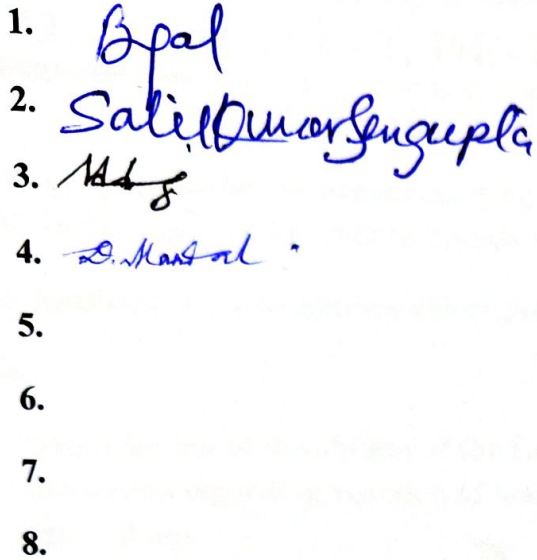 1. Bpal
2. Salil Kumar Sengupta
3.
4. D. Mandal
5.
6.
7.
8.